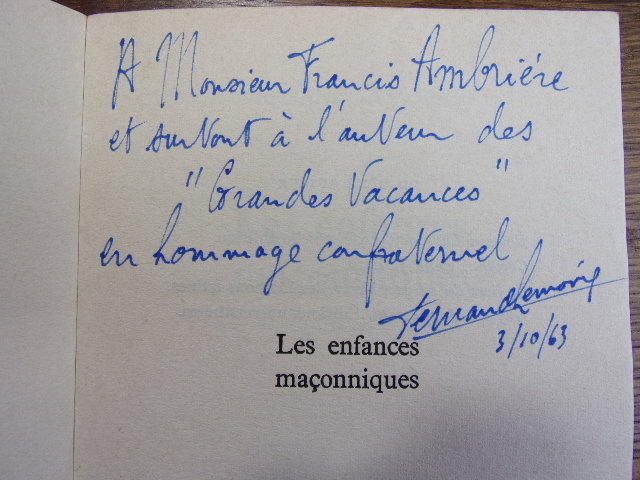 A Monsieur Francis Ambrière
et surtout à l'auteur des
"Grandes Vacances"
en hommage confraternel
3/10/63
Les enfances
maçonniques